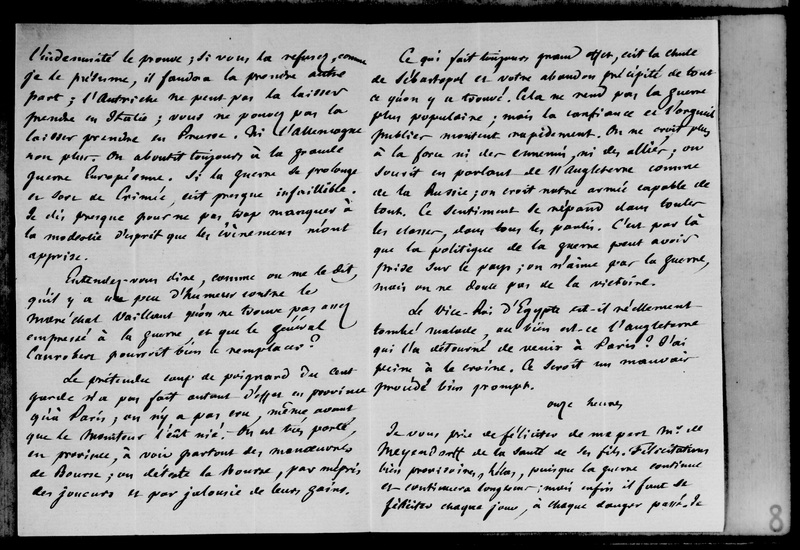 l'indemnité le prouve ; si vous la refusez, comme
je le présume, il faudra la prendre autre
part ; l'Autriche ne peut pas la laisser
prendre en Italie ; vous ne pouvez pas la
laisser prendre en Prusse. Ni l'Allemagne
non plus. On aboutit toujours à la grande
guerre Européenne. Si la guerre se prolonge
et sort de Crimée, c'est presque infaillible.
Je dis presque pour ne pas trop manquer à
la modestie d'esprit que les évènemens m'ont
apprise.
Entendez-vous dire, comme on me le dit,
qu'il y a un peu d'humeur contre le
maréchal Vaillant qu'on ne trouve pas assez
empressé à la guerre et que le général
Canrobert pourroit bien le remplacer ?
Le prétendu coup de poignard du Cent
garde n'a pas fait autant d'effet en province
qu'à Paris ; on n'y a pas cru, même avant
que le Moniteur l'eût nié. On est bien porté,
en province, à voir partout des manœuvres
de Bourse ; on déteste la Bourse, par mépris
des joueurs et par jalousie de leurs gains.
Ce qui fait toujours grand effet, c'est la chute
de Sébastopol et votre abandon précipité de tout
ce qu'on y a trouvé. Cela ne rend pas la guerre
plus populaire ; mais la confiance et l'orgueil
publics montent rapidement. On ne croit plus
à la force ni des ennemis, ni des alliés ; on
sourit en parlant de l'Angleterre comme
de la Russie ; on croit notre armée capable de
tout. Ce sentiment se répand dans toutes
les classes, dans tous les partis. C'est par là
que la politique de la guerre peut avoir
prise sur le pays ; on n'aime pas la guerre,
mais on ne doute pas de la victoire.
Le Vice-Roi d'Egypte est-il réellement
tombé malade, ou bien est-ce l'Angleterre
qui l'a détourné de venir à Paris ? J'ai
peine à le croire. Ce seroit un mauvais
procédé bien prompt.
onze heures
Je vous prie de féliciter de ma part Mr. de
Meyendorff de la santé de ses fils. Félicitations
bien provisoires, hélas, puisque la guerre continue
et continuera longtems ; mais enfin il faut se
féliciter chaque jour, à chaque danger passé. Je
8